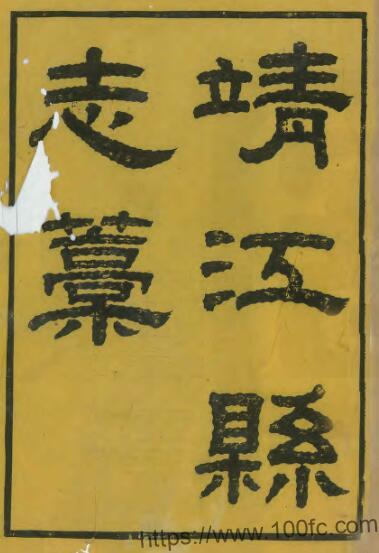 靖江縣
志藁
https://www.100fc.com